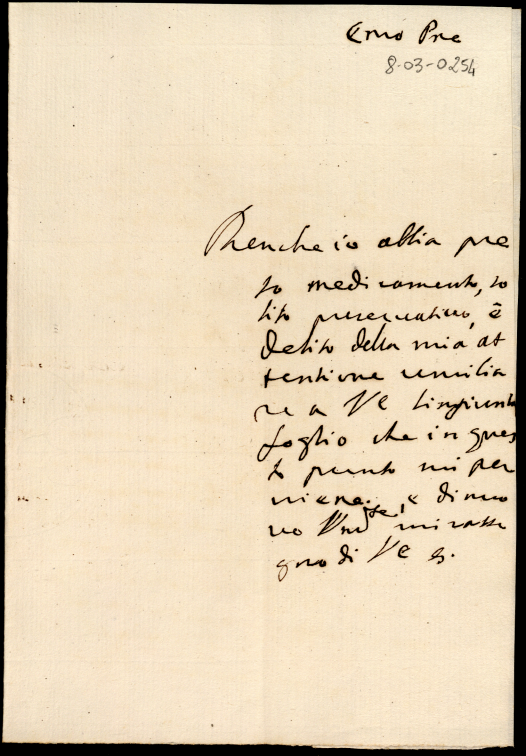 Emo Pre
8-03-0254
Benche io abbia pre
so medicamento, so
lito preservativo, è
debito della mia at
tentione umilia
re a VE l'ingiunto
foglio che in ques
to punto mi per
viene, e di nuo
vo mi rasse
gno di VE